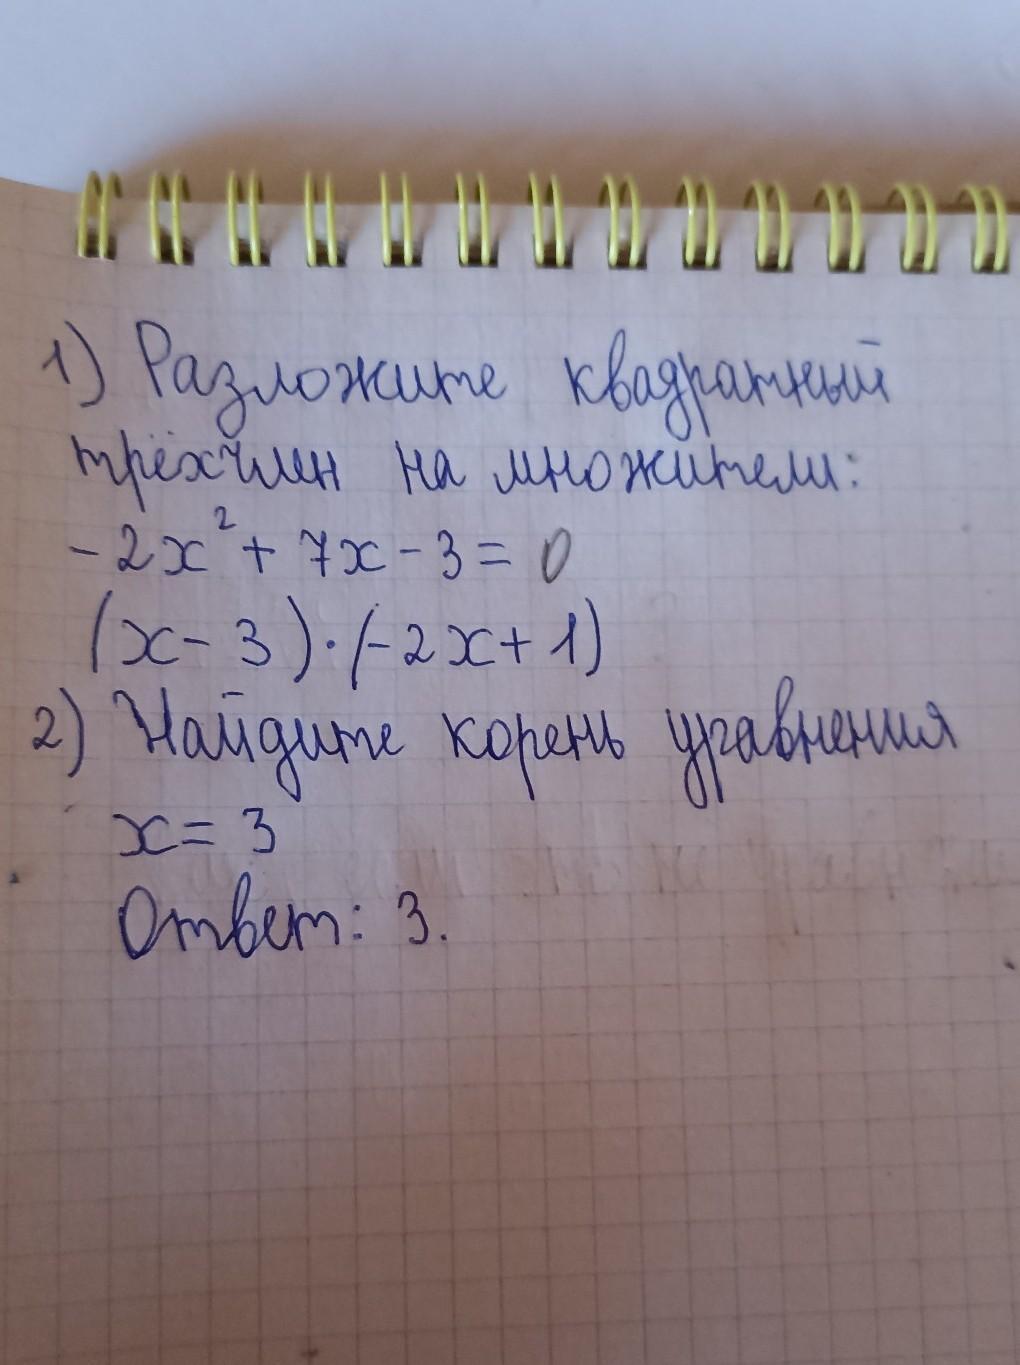 1) Разложите квадратный
трёхчлен на множители:
-2x² + 7x - 3 = 0
(x - 3) · (-2x + 1)
2) Найдите корень уравнения
x = 3
Ответ: 3.